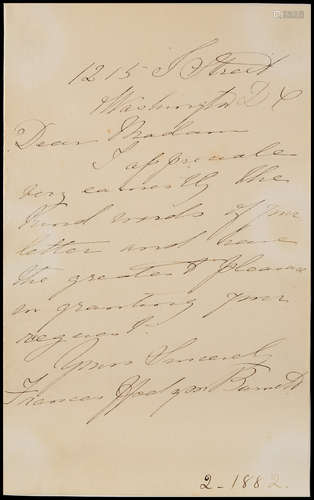 1215 I Street
Washington D C
Dear Madam
I appreciate
very earnestly the
kind words of your
letter and have
the greatest pleasure
in granting your
request.
Yours Sincerely
Frances Hodgson Burnett
2-1882